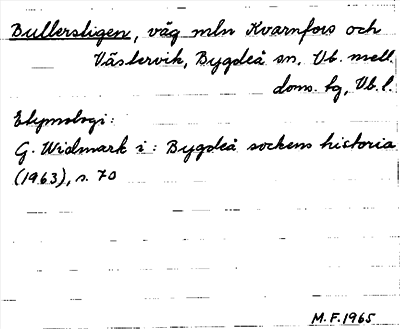 Bullerstigen, väg mln Kvarnfors och
Västervik, Bygdeå sn, Vb. mell.
doms. tg, Vb. l.
Etymologi:
G. Widmark i: Bygdeå sockens historia
(1963), s. 70
M.F. 1965